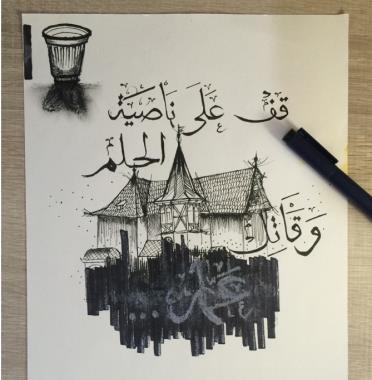 قف على ناصية
الحلم
وقاتل